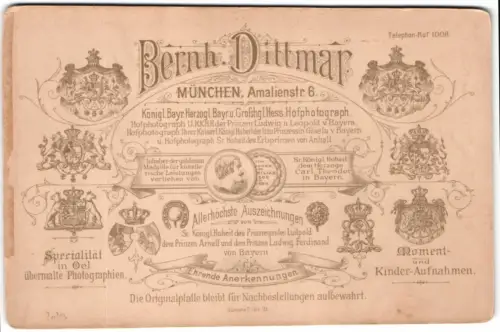 Telephon-Ruf 1008
Bernh. Dittmar
MÜNCHEN, Amalienstr. 6.
Königl. Bayr. Herzogl. Bayr. u. Grofshgl. Hess. Hofphotograph.
Hofphotograph I.I.K.K.H.H. der Prinzen Ludwig u. Leopold v. Bayern.
Hofphotograph Ihrer Kaiserl. Königl. Hoheit der Frau Prinzessin Gisela v. Bayern
u. Hofphotograph Sr. Hoheit des Erbprinzen von Anhalt
Inhaber der goldenen
Medaille für künstle-
rische Leistungen
verliehen von
Sr. Königl. Hoheit
dem Herzoge
Carl Theodor
in Bayern.
Allerhöchste Auszeichnungen
Sr. Königl. Hoheit des Prinzregenten Luitpold
des Prinzen Arnulf und des Prinzen Ludwig Ferdinand
von Bayern
Ehrende Anerkennungen
Specialität
in Oel
übermalte Photographien.
Moment-
und
Kinder-Aufnahmen.
Die Originalplatte bleibt für Nachbestellungen aufbewahrt.